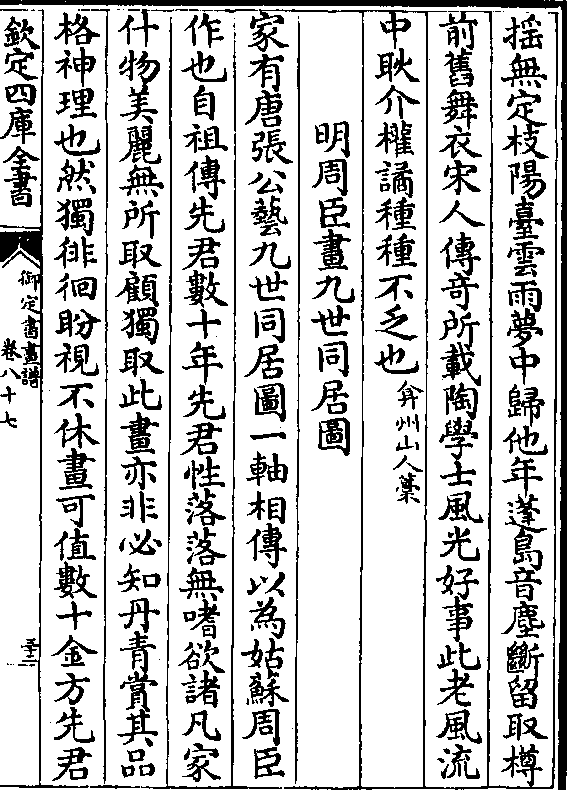 揺無定枝陽臺雲雨夢中歸他年蓬島音塵斷留取樽
前舊舞衣宋人傳奇所載陶學士風光好事此老風流
中耿介權譎種種不乏也弇州山人藁
明周臣畫九世同居圖
家有唐張公藝九世同居圖一軸相傳以為姑蘇周臣
作也自祖傳先君數十年先君性落落無嗜欲諸凡家
什物美麗無所取顧獨取此畫亦非必知丹青賞其品
格神理也然獨徘徊盼視不休畫可值數十金方先君
欽定四庫全書
御定書畫譜
卷八十七